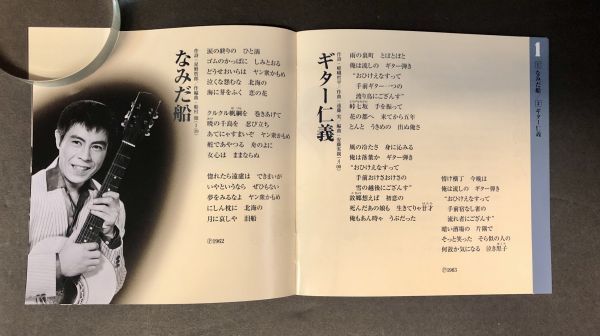 なみだ船
涙の終りの ひと滴
ゴムのかっぱに しみとおる
どうせおいらは ヤン衆かもめ
泣くな怨むな 北海の
海に芽をふく 恋の花
クルクル帆綱を 巻きあげて
暁の千島を 忍び立ち
あてにゃすまいぞ ヤン衆かもめ
舵であやつる 舟のよに
女心は ままならぬ
惚れたら遠慮は できまいが
いやというなら ぜひもない
夢をみるなよ ヤン衆かもめ
にしん枕に 北海の
月に哀しや 泪船
Ⓟ1962
ギター仁義
雨の裏町 とぼとぼと
俺は流しの ギター弾き
"おひけえなすって
手前ギター一つの
渡り鳥にござんす"
峠七坂 手を振って
花の都へ 来てから五年
とんと うきめの 出ぬ俺さ
風の冷たさ 身に沁みる
俺は落葉か ギター弾き
"おひけえなすって
手前おけさおけさの
雪の越後にござんす"
故郷想えば 初恋の
死んだあの娘も 生きてりゃ廿才
俺もあん時ゃ うぶだった
情け横丁 今晩は
俺は流しの ギター弾き
"おひけえなすって
手前宿なし者の
流れ者にござんす"
暗い酒場の 片隅で
そっと笑った そら似の人の
何故か気になる 泣き黒子
Ⓟ1963
1
1 なみだ船 2 ギター仁義